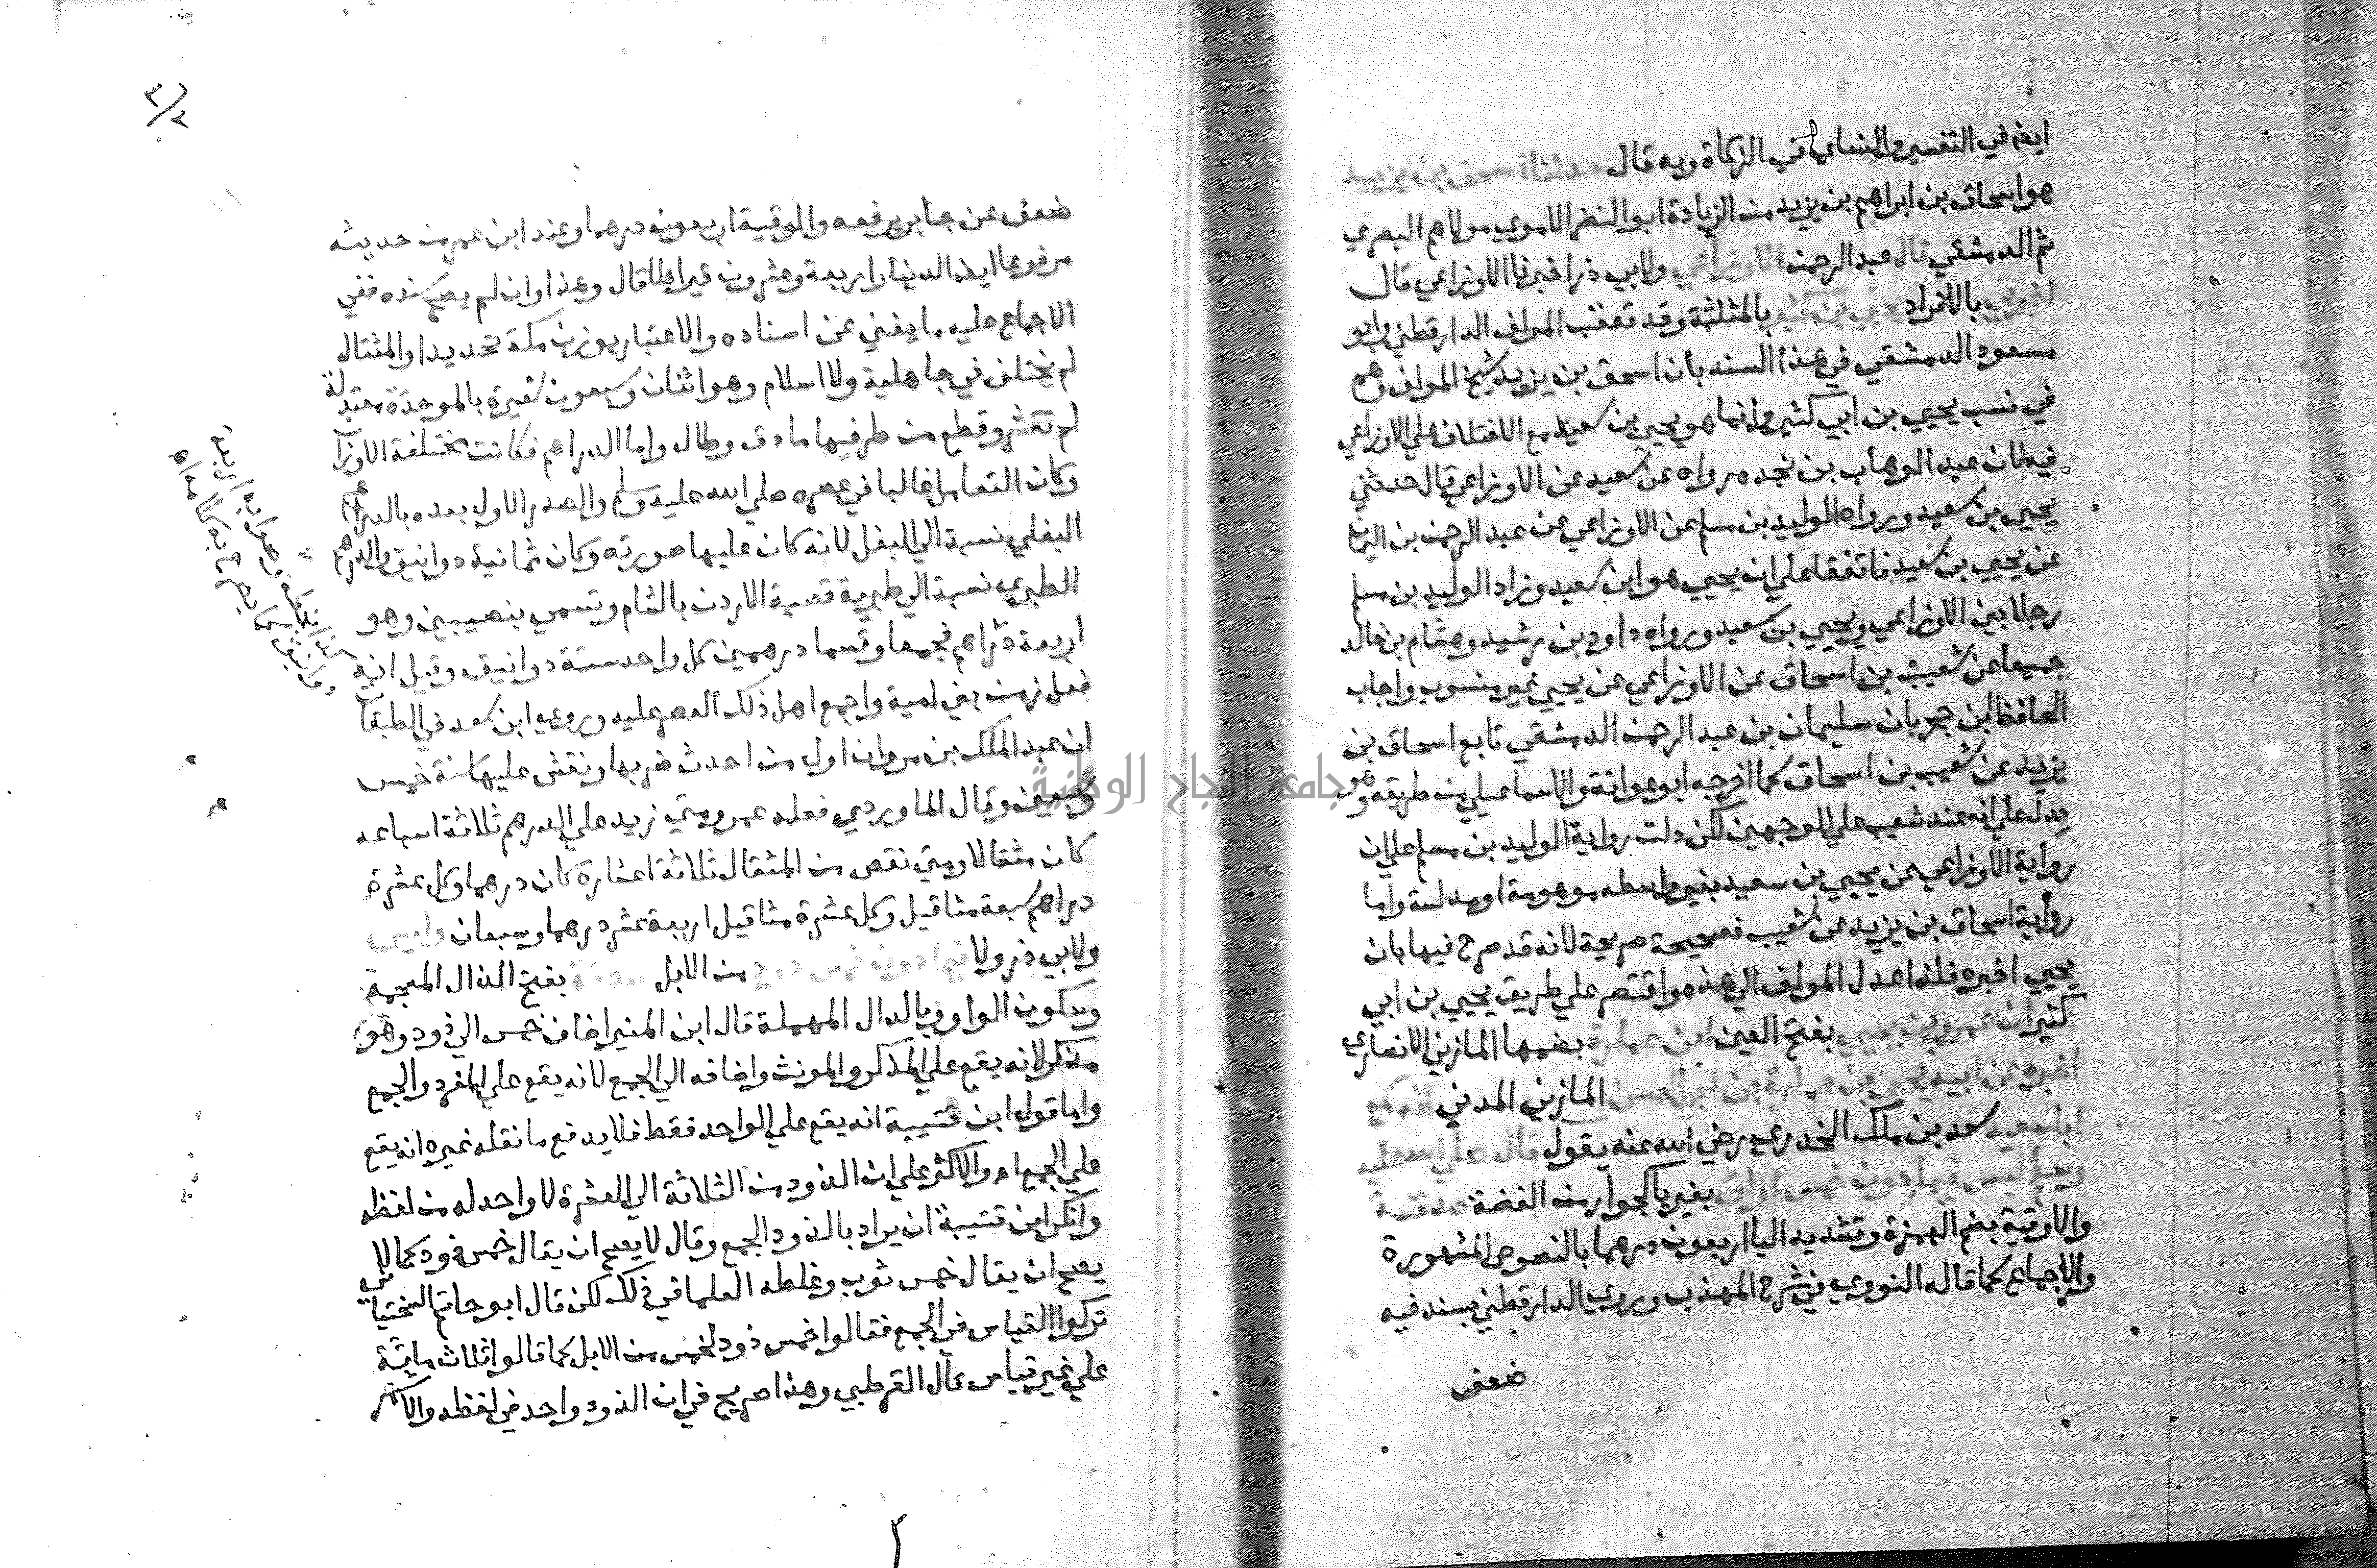 ايضا في التفسير والنساي في الزكاة وبه قال حدثنا اسحق بن يزيد
هو اسحاق بن ابراهيم بن يزيد من الزيادة ابو النضر الاموي مولاهم البصري
ثم الدمشقي قال عبد الرحمن الاوزاعي ولابي ذر اخبرنا الاوزاعي قال
اخبرني بالافراد يحيى بن كثير بالمثلثة وقد تعقب المولف الدارقطني وابو
مسعود الدمشقي في هذا السند بان اسحق بن يزيد شيخ المولف وهم
في نسب يحيي بن ابي كثير وانما هو يحيي بن سعيد مع الاختلاف علي الاوزاعي
فيه لان عبد الوهاب بن نجده رواه عن سعيد عن الاوزاعي قال حدثني
يحيي بن سعيد ورواه الوليد بن مسلم عن الاوزاعي عن عبد الرحمن بن اليمان
عن يحيي بن سعيد فاتفقا علي ان يحيي هو ابن سعيد وزاد الوليد بن مسلم
رجلا بين الاوزاعي ويحيي بن سعيد ورواه داود بن رشيد وهشام بن خالد
جميعا عن شعيب بن اسحاق عن الاوزاعي عن يحيي غير منسوب واجاب
الحافظ ابن حجر بان سليمان بن عبد الرحمن الدمشقي تابع اسحاق بن
يزيد عن شعيب بن اسحاق كما اخرجه ابو عوانة والاسماعيلي من طريقه وهو
يدل علي انه عند شعيب علي الوجهين لكن دلت رواية الوليد بن مسلم علي ان
رواية الاوزاعي عن يحيي بن سعيد بغير واسطه موهومة او مدلسة واما
رواية اسحاق بن يزيد عن شعيب فصحيحة صريحة لانه قد صرح فيها بان
يحيي اخبره فلذا عدل المولف الي هذه واقتصر علي طريق يحيي بن ابي
كثير ان عمرو بن يحيي بفتح العين ابن عمارة بضمها المازني الانصاري
اخبره عن ابيه يحيي بن عمارة بن ابي الحسن المازني المدني انه سمع
ابا سعيد سعد بن ملك الخدري رضي الله عنه يقول قال صلي الله عليه
وسلم ليس فيما دون خمس اواق بغير يا كجوار من الفضة صدقة
والاوقية بضم الهمزة وتشديد اليا اربعون درهما بالنصوص المشهورة
والاجماع كما قاله النووي في شرح المهذب وروي الدارقطني بسند فيه
ضعف
٣/٢
ضعف عن جابر يرفعه والوقية اربعون درهما وعند ابن عمر من حديثه
مرفوعا ايضا الدينار اربعة وعشرون قيراطا قال وهذا وان لم يصح سنده ففي
الاجماع عليه ما يغني عن اسناده والاعتبار بوزن مكة تحديدا والمثقال
لم يختلف في جاهلية ولا اسلام وهو اثنان وسبعون شعيرة بالموحدة معتدلة
لم تقشر وقطع من طرفيها ما دق وطال واما الدراهم فكانت مختلفة الاوزان
وكان التعامل غالبا في عصره صلي الله عليه وسلم والصدر الاول بعده بالدرهم
البغلي نسبة الي البغل لانه كان عليها صورته وكان ثمانية دوانيق والدرهم
الطبري نسبة الي طبرية قصبة الاردن بالشام وتسمي بنصيبين وهو
اربعة دراهم فجمعا وقسما درهمين كل واحد ستة دوانيق وقيل انه
فعل زمن بني امية واجمع اهل ذلك العصر عليه وروي ابن سعد في الطبقات
ان عبد الملك بن مروان اول من احدث ضربها ونقش عليها سنة خمس
وسبعين وقال الماوردي فعله عمر ومتي زيد علي الدرهم ثلاثة اسباعه
كان مثقالا ومتي نقص من المثقال ثلاثة اعشاره كان درهما وكل عشرة
دراهم سبعة مثاقيل وكل عشرة مثاقيل اربعة عشر درهما وسبعان وليس
ولابي ذر ولا فيما دون خمس ذود من الابل صدقة بفتح الذال المعجمة
وسكون الواو وبالدال المهملة قال ابن المنير اضاف خمس الي ذود وهو
مذكر لانه يقع علي المذكر والمونث واضافه الي الجمع لانه يقع علي المفرد والجمع
واما قول ابن قتيبة انه يقع علي الواحد فقط فلا يدفع ما نقله غيره انه يقع
علي الجمع اه والاكثر علي ان الذود من الثلاثة الي العشرة لا واحد له من لفظه
وانكر ابن قتيبة ان يراد بالذود الجمع وقال لا يصح ان يقال خمس ذود كما لا
يصح ان يقال خمس ثوب وغلطه العلما في ذلك لكن قال ابو حاتم السختياني
تركوا القياس في الجمع فقالوا خمس ذود لخمس من الابل كما قالوا ثلاث ماية
علي غير قياس قال القرطبي وهذا صريح في ان الذود واحد في لفظه والاكثر
جامعة النجاح الوطنية